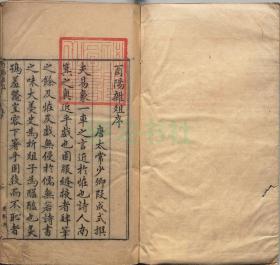 酉陽雜俎序
唐太常少卿段成式撰
夫易象一車之言近於怪也詩人南
箕之興近乎戲也固服縫掖者肆筆
之餘及怪及戲無侵於儒無若詩書
之味大羹史為折俎子為醯醢也炙
鴞羞鱉豈容下箸乎固役而不恥者